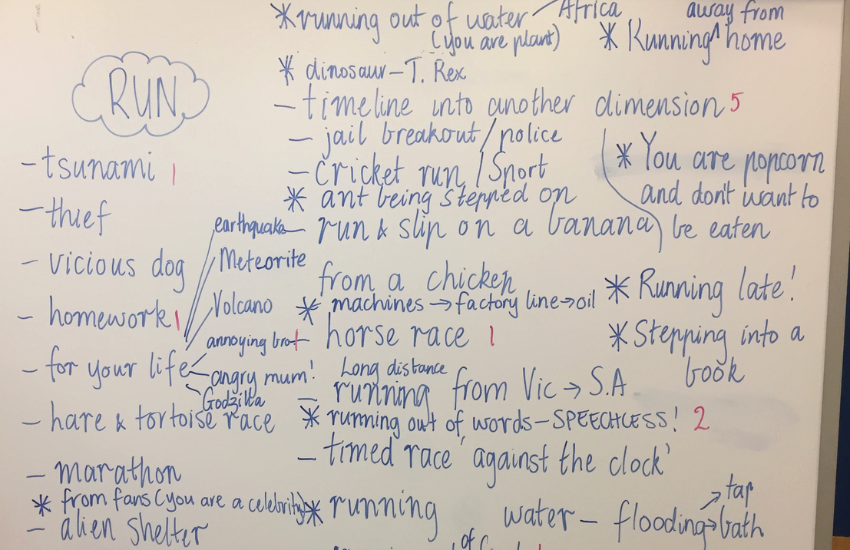 RUN
– tsunami 1
– thief
– vicious dog
– homework 1
– for your life
earthquake
Meteorite
Volcano
annoying bro
angry mum!
Godzilla
– hare & tortoise race
– marathon
* from fans (you are a celebrity)
– alien shelter
* running out of water
Africa
(you are plant)
* dinosaur – T. Rex
– timeline into another dimension 5
– jail breakout/police
– cricket run / Sport
* ant being stepped on
– run & slip on a banana
from a chicken
* machines → factory line → oil
– horse race 1
Long distance
– running from Vic → S.A
* running out of words – SPEECHLESS! 2
– timed race 'against the clock'
* running water – flooding → bath
tap
away from
* Running ^ home
* You are popcorn
and don't want to
be eaten
* Running late!
* Stepping into a
book